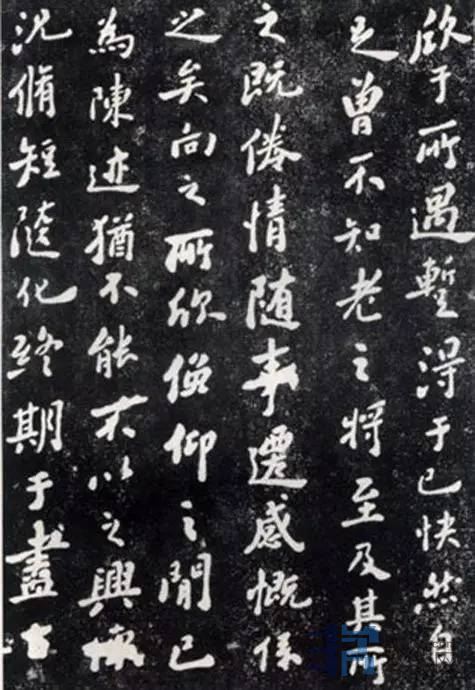 欣于所遇暫得于己快然自
足曾不知老之将至及其所
之既倦情随事遷感慨係
之矣向之所欣俛仰之閒已
為陳迹猶不能不以之興懷
況脩短随化終期于盡古